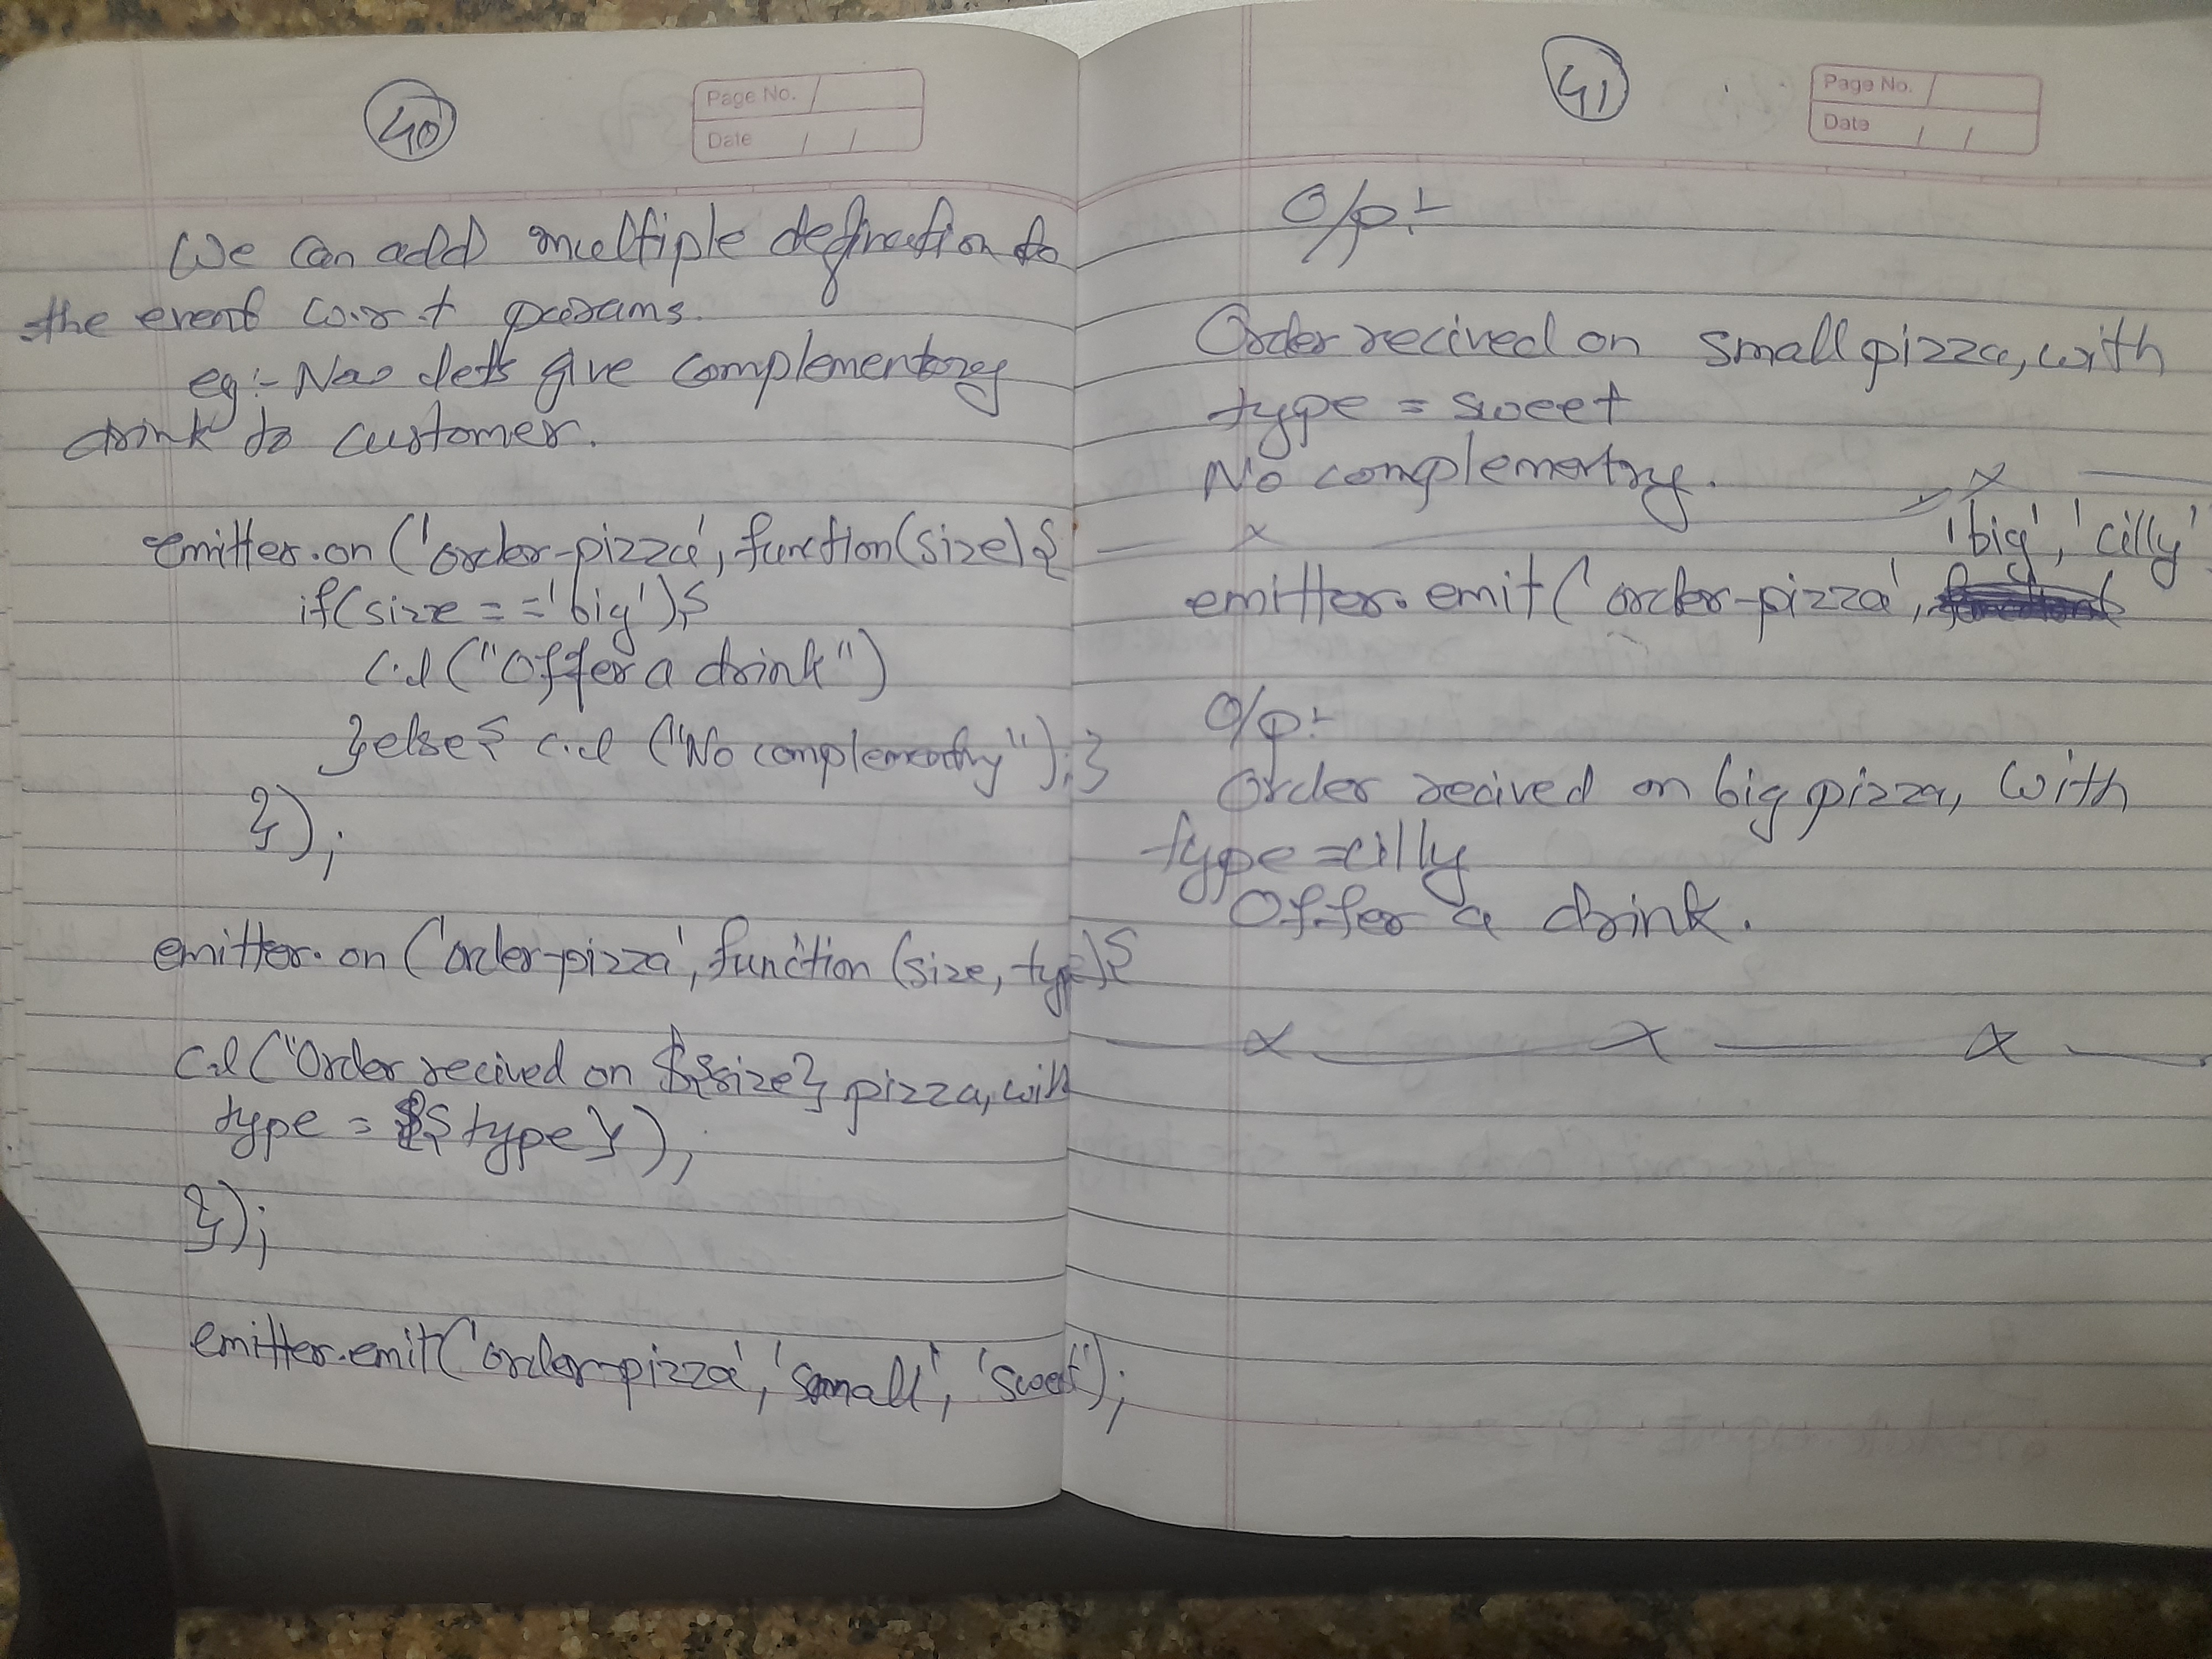 40
Page No.
Date
We can add multiple defination to
the event w.r.t params.
eg:- Now let's give complementory
drink to customer.
emitter.on('order-pizza', function(size){
if(size=='big'){
c.l("Offer a drink")
}else{ c.l ("No complementry");}
});
emitter.on('order-pizza', function (size, type){
c.l("Order recived on ${size} pizza, with
type = ${type});
});
emitter.emit('order-pizza', 'small', 'sweet');
41
Page No.
Date
O/p:-
Order recived on small pizza, with
type = sweet
No complementry.
'big', 'cilly'
emitter.emit('order-pizza',
O/p:-
Order recived on big pizza, with
type=cilly
Offer a drink.